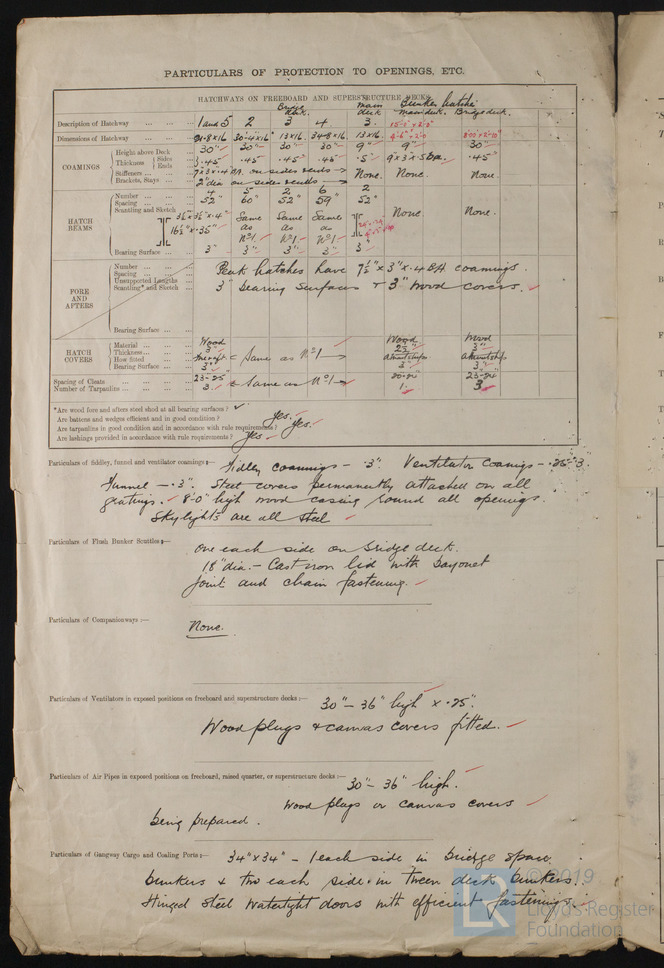 PARTICULARS OF PROTECTION TO OPENINGS, ETC.
HATCHWAYS ON FREEBOARD AND SUPERSTRUCTURE DECKS
Bridge deck. main deck Bunker hatches main deck. Bridge deck.
Description of Hatchway 1 and 5 2 3 4 3.
Dimensions of Hatchway 30·4×16" 13×16. 34·8×16. 13×16.
COAMINGS
Height above Deck 30" 30" 30" 30" 9" 9" 30"
Thickness Sides Ends .45 .45 .45 .45 .5 .45
Stiffeners 7×3×.4 BA. on sides vends → None. None. None.
Brackets, Stays 2" dia on sides vends →
HATCH BEAMS
Number 4 5 2 6 2
Spacing 52" 60" 52" 59" 52"
Scantling and Sketch 16½"×.35" Same as No1. Same as No1. Same as No1. None. None.
Bearing Surface 3" 3" 3" 3" 3
FORE AND AFTERS
Number
Spacing
Unsupported Lengths
Scantling* and Sketch
Peak hatches have 7½"×3"×.4 BA coamings.
3" bearing surfaces & 3" wood covers.
Bearing Surface
HATCH COVERS
Material Wood Wood Wood
Thickness 3" 2½" 3"
How fitted fore & aft < Same as No1 → athwartships athwartship
Bearing Surface 3" 3" 3"
Spacing of Cleats 23-25" < Same as No1 → 20-24 23-24"
Number of Tarpaulins 3. 1. 3
*Are wood fore and afters steel shod at all bearing surfaces? ✓
Are battens and wedges efficient and in good condition? Yes.
Are tarpaulins in good condition and in accordance with rule requirements? Yes.
Are lashings provided in accordance with rule requirements? Yes
Particulars of fiddley, funnel and ventilator coamings:— Fidley coamings - .3". Ventilator Coamgs -
Funnel - .3". Steel covers permanently attached on all
gratings. 8'0" high wood casing round all openings.
Skylights are all steel
Particulars of Flush Bunker Scuttles:— One each side on bridge deck.
18" dia. - Cast iron lid with bayonet
joint and chain fastening.
Particulars of Companionways:— None.
Particulars of Ventilators in exposed positions on freeboard and superstructure decks:— 30" - 36" high × .25".
Wood plugs & canvas covers fitted.
Particulars of Air Pipes in exposed positions on freeboard, raised quarter, or superstructure decks:— 30" - 36" high.
Wood plugs or canvas covers
being prepared.
Particulars of Gangway Cargo and Coaling Ports:— 34"×34" - 1 each side in bridge space
bunkers & two each side in tween deck bunkers.
Hinged steel watertight doors with efficient fastenings.
© 2019
LR
Lloyd's Register
Foundation